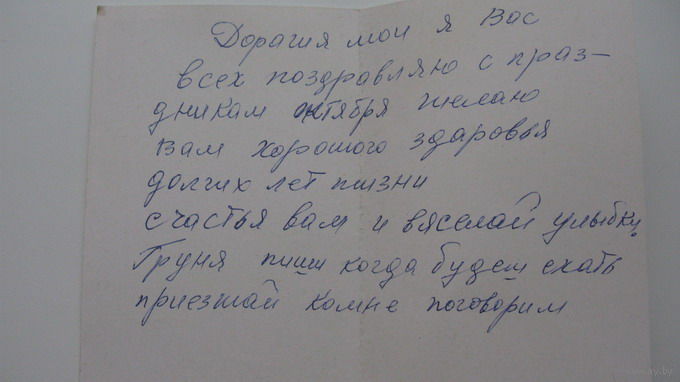 Дорагия мои я Вас
всех поздравляю с праз-
дникам октября желаю
вам хорошого здаровья
долгих лет жизни
счастья вам и вяселай улыбки.
Груня пиши когда будеш ехать
приезжай комне поговорим